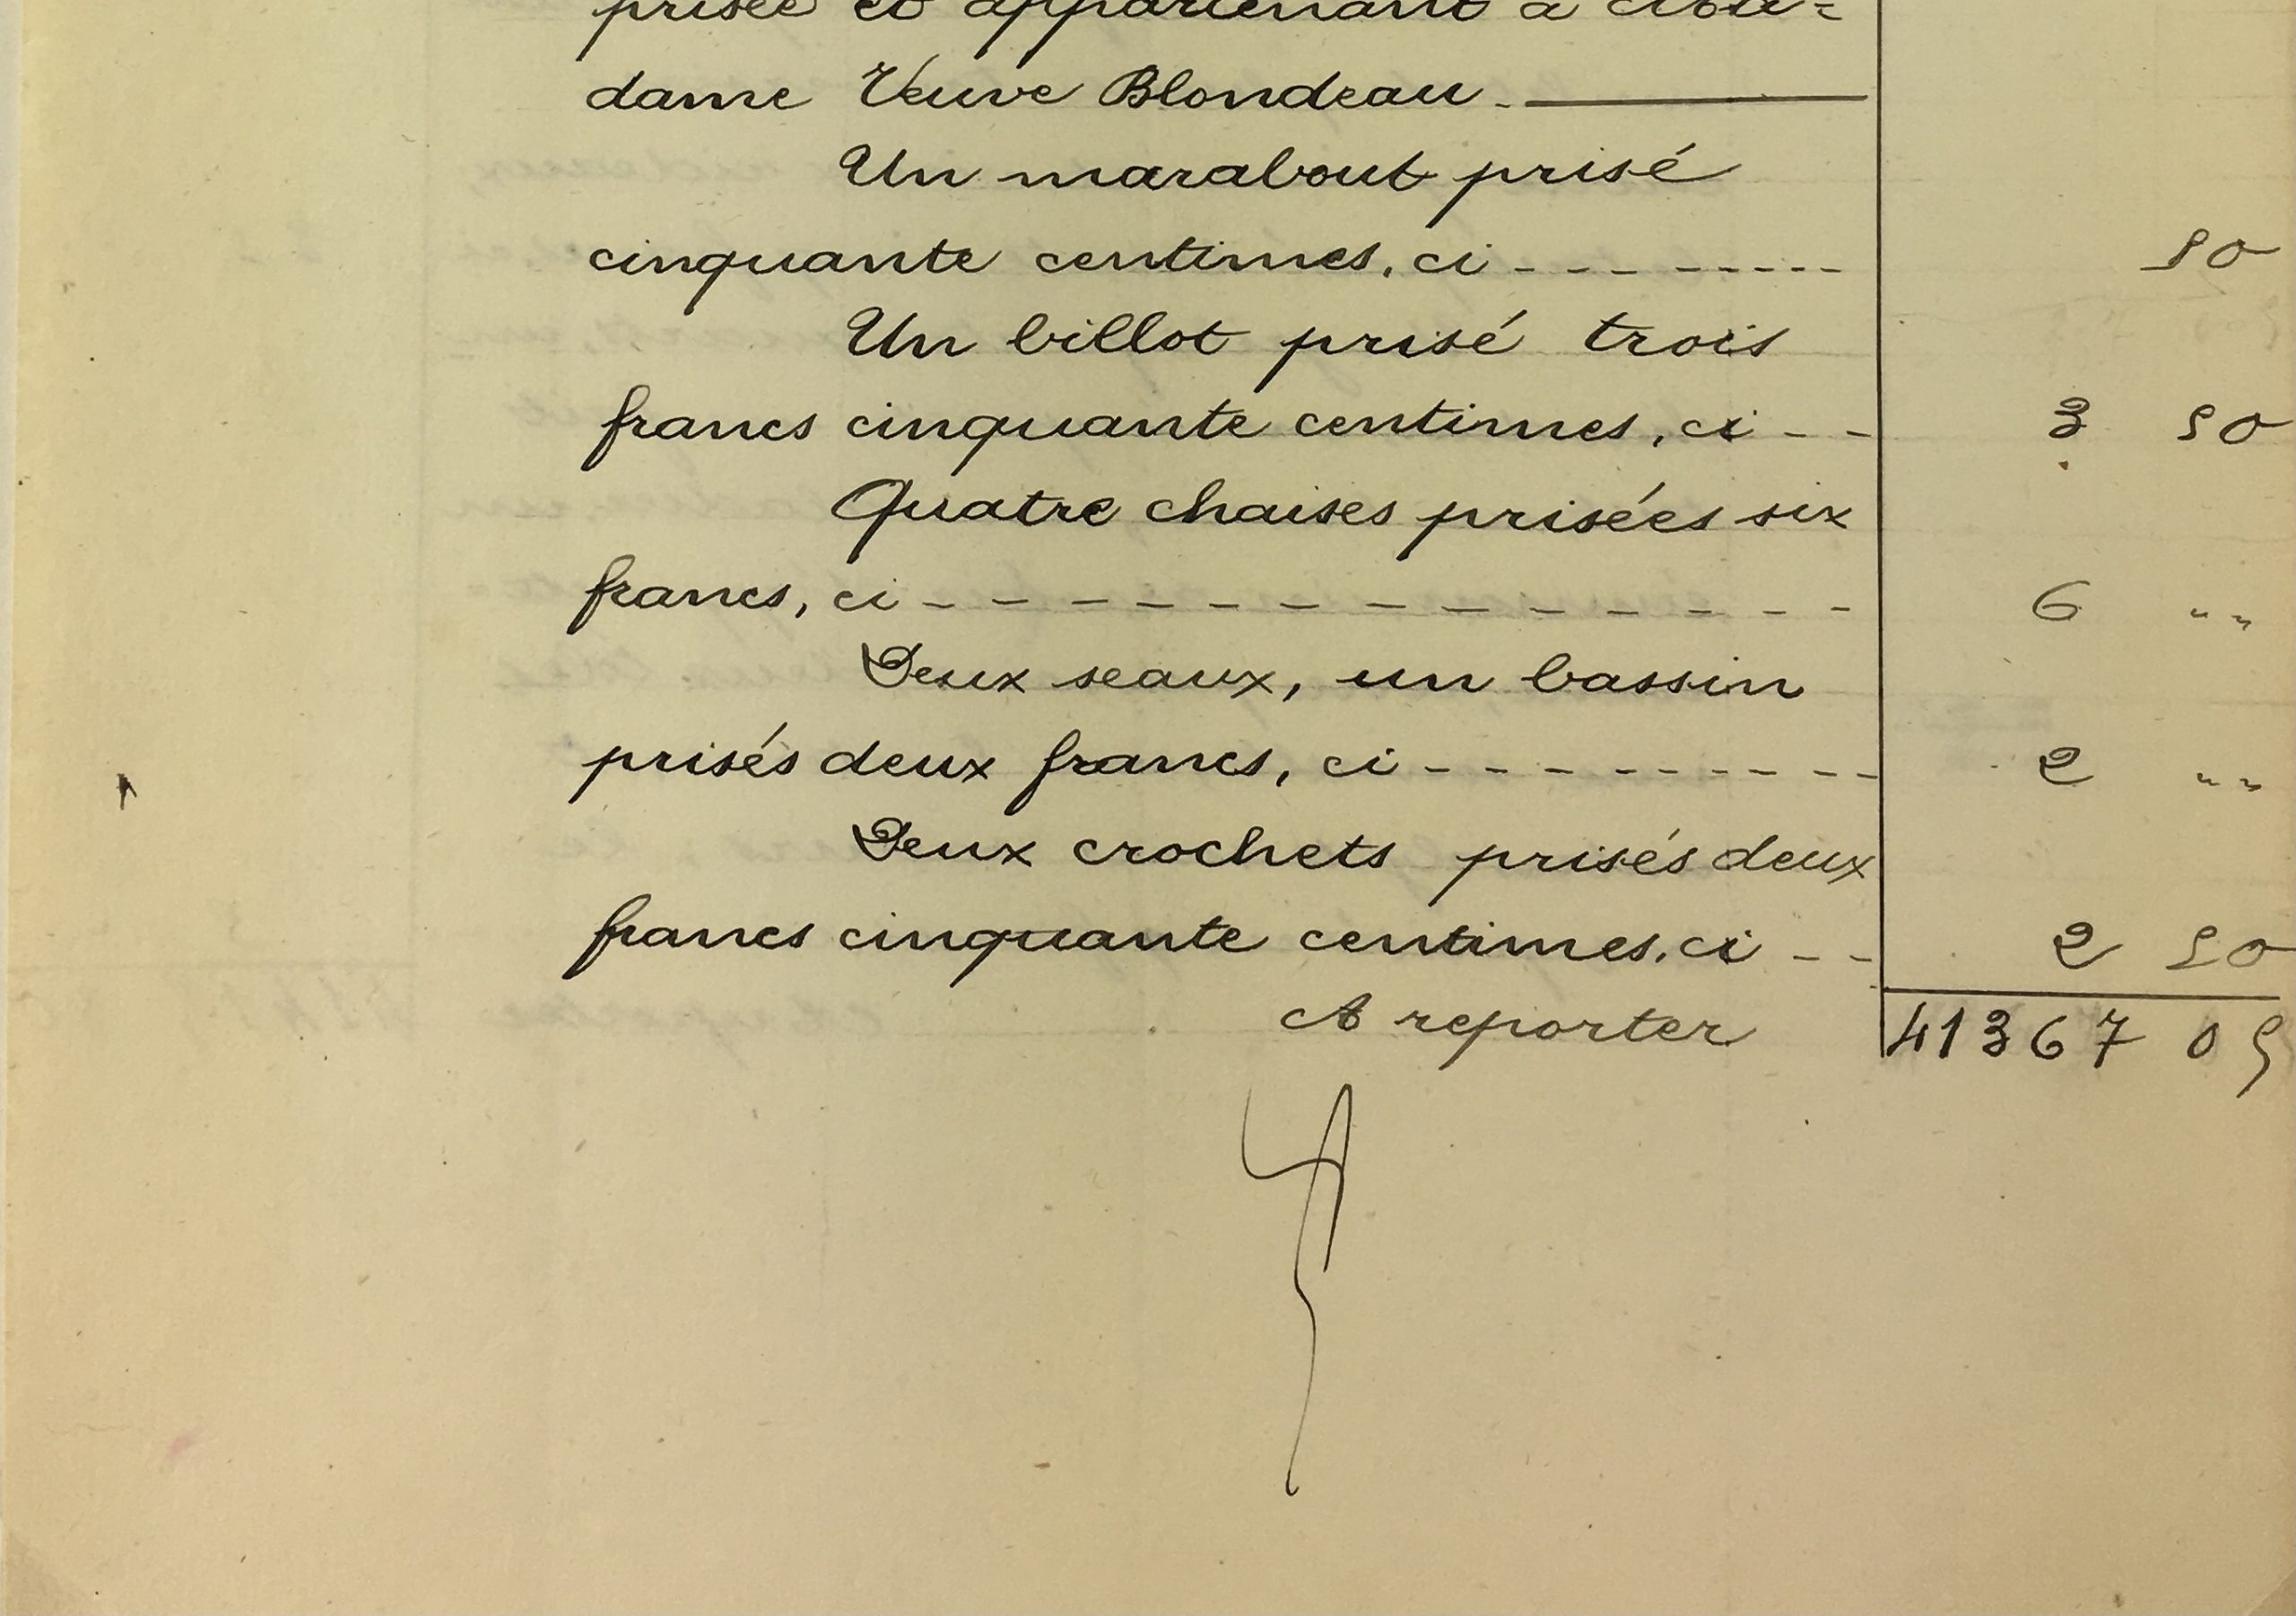 prisée et appartenant à Ma-
dame Veuve Blondeau.
Un marabout prisé
cinquante centimes, ci - - - - - - - - - 50
Un billot prisé trois
francs cinquante centimes, ci - - 3 50
Quatre chaises prisées six
francs, ci - - - - - - - - - - - - - - 6 " "
Deux seaux, un bassin
prisés deux francs, ci - - - - - - - - - - 2 " "
Deux crochets prisés deux
francs cinquante centimes, ci - - 2 50
A reporter 41367 05